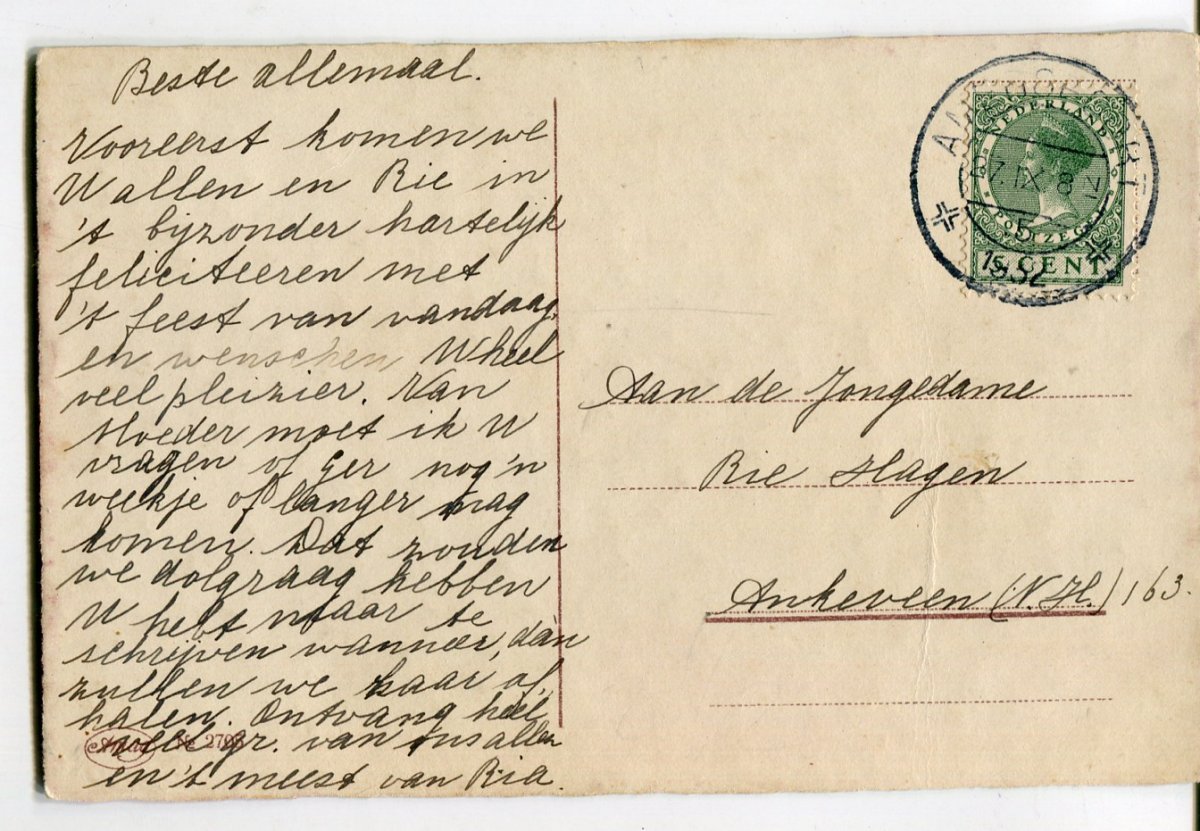 Beste allemaal.
Vooreerst komen we
U allen en Rie in
't bijzonder hartelijk
feliciteeren met
't feest van vandaag,
en wenschen U heel
veel pleizier. Van
Moeder moet ik U
vragen of Ger nog 'n
weekje of langer mag
komen. Dat zouden
we dolgraag hebben
U hebt maar te
schrijven wanneer, dan
zullen we haar af
halen. Ontvang heel
veel gr. van ons allen
en 't meest van Ria.
No 2798
NEDERLAND
POSTZEGEL
5 CENT
AMERSFOORT
IX
1932
Aan de Jongedame
Rie Hagen
Ankeveen (N.H.) 163.